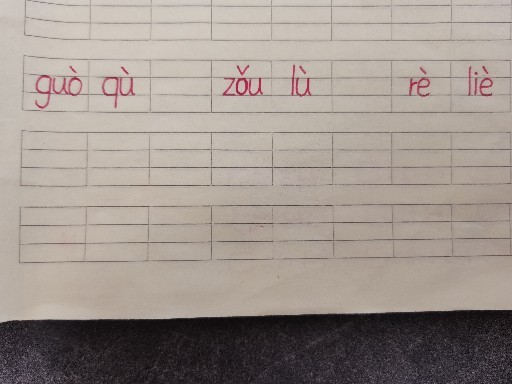 guò qù zǒu lù rè liè